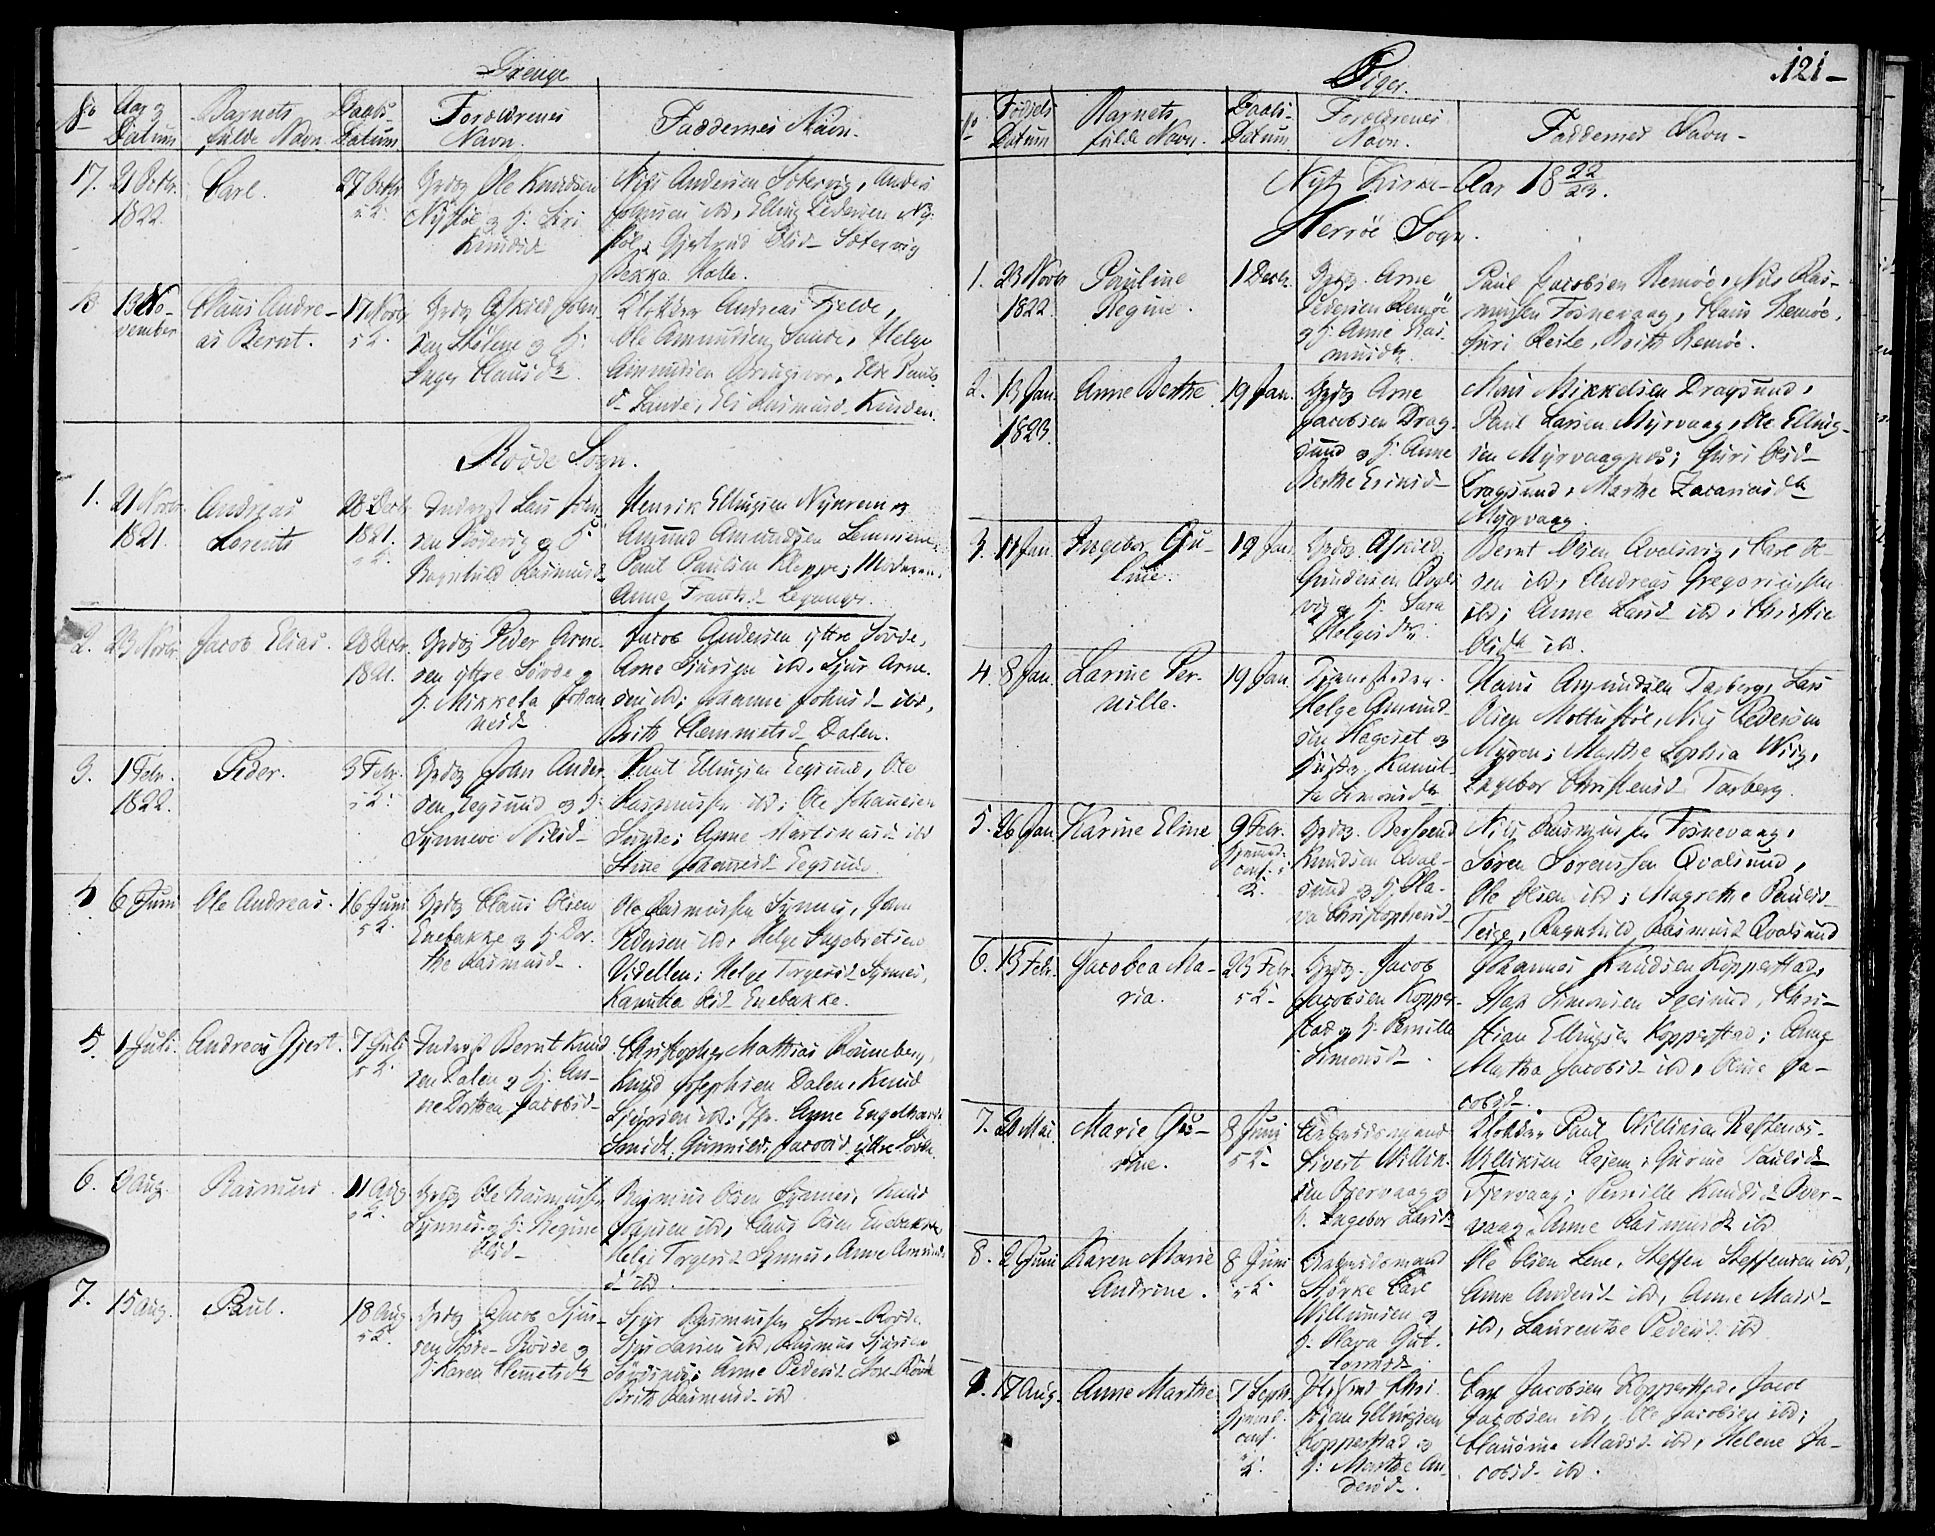 Drenge
No
Aar og Datum
Barnets fulde Navn
Daabs-Datum
Forældrenes Navn.
Faddernes Navn.
17.
21 Octbr 1822.
Carl.
27 Octbr
Grdbg Ole Knudsen
Nystøl og H: Siri
Knudsd
Niels Andersen Sætervig, Anders
Johnsen ibd, Elling Pedersen Ny-
støl; Gjertrud Olsd Sætervig
Bekka Halle.
13 No-
vember
Claus Andre-
as Bernt.
17 Novbr
Grdbg Askild John
sen Støene og H:
Inger Clausd
Klokker Andreas Fjelde,
Ole Amundsen Sande, Helge
Amundsen, Else Pauls
d Sande, Eli Rasmusd
Røvde Sogn.
1.
21 Novbr
1821.
Andreas
Lorents
26 Decbr
1821.
Inderst Lars
sen og H:
Ragnhild Rasmusd
Henrik Ellingsen
Amund Amundsen
Paul Paulsen Kleppe;
Anne
2.
23 Novbr
Jacob Elias.
26 Decbr
1821.
Grdbg Peder Arne-
sen yttre Søvde og
H: Mikkela Johan
nesd
Jacob Andersen yttre Søvde,
Arne Sjursen ibd, Sjur Arne-
sen ibd; Johnsd ibd,
Brite Clemmetsd Dalen.
3.
1 Febr.
1822.
Peder.
3 Febr.
Grdbg John Ander
sen Eegsund og H:
Synneve Nilsd
Paul Ellingsen Eegsund, Ole
Rasmussen ibd; Ole Johannesen
Sunde; Anne Martinusd ibd
Stine Johannesd Eegsund.
4
6 Juni
Ole Andreas.
16 Juni
Grdbg Claus Olsen
Enebakke og H: Dor-
the Rasmusd
Ole Rasmussen Synnes, Jens
Pedersen ibd, Helge Ingebretsen
Videllen; Helge Torgersd Synnes,
Kanutta Olsd Enebakke.
5.
1 Juli.
Andreas Gjert.
7 Juli
Inderst Bernt Knud
sen Dalen og H: An-
ne Dorthea Jacobsd
Christopher Mathias Rønneberg,
Knud Josephsen Dalen, Knud
Sjursen ibd; Jfr. Anne Engelharda
Smidt, Gunnild Jacobsd yttre Søvde.
6.
9 Aug.
Rasmus
11 Aug
Grdbg Ole Rasmussen
Synnes og H: Regine
Olsd
Rasmus Olsen Synnes, Knud
Johnsen ibd, Claus Olsen Enebakke
Helge Torgersd Synnes, Anne Amund
d ibd.
7.
15 Aug.
Paul.
18 Aug
Grdbg Jacob Sjur-
sen Store-Røvde og
H: Karen Clemetsd
Sjur Rasmussen Store-Røvde
Sjur Larsen ibd, Rasmus Sjursen
Anne Pedersd Store-Røvde
Brite Rasmusd ibd
Piger.
121-
No
Fødsels Datum
Barnets fulde Navn.
Daabs-Datum
Forældrenes Navn.
Faddernes Navn-
Nyt Kirke-Aar 18 22/23.
Herrøe Sogn.
1.
23 Novbr
1822.
Pauline
Regine.
1 Decbr.
Grdbg. Arne
Pedersen Remøe
og H: Anne Ras-
musd.
Paul Jacobsen Remøe, Nils Ras-
mussen Fosnevaag, Claus Remøe,
Guri Reite, Brith Remøe.
2.
13 Jan.
1823.
Anne Berthe
19 Jan.
Grdbg Arne
Jacobsen Drag-
sund og H: Anne
Berthe Erinsd
Mons Mikkelsen Dragsund,
Paul Larsen Myrvaag, Ole Elling-
sen Myrvaagnes; Guri Olsd
Dragsund, Marthe Zacariasd
Myrvaag.
3.
11 Jan.
Ingebor Gu-
line.
19 Jan.
Grdbg Askild
Gundersen Qvals
vig og H: Sara
Helgesd
Bernt Olsen Qvalsvig, Carl Ol-
sen ibd, Andreas Gregoriussen
ibd; Anne Larsd ibd, Christie
Olsd ibd.
4.
8 Jan.
Larine Per-
nille.
19 Jan.
Tjenistedrn.
Helge Amund-
sen Hageset og
Hustr. Kanut-
ta Simonsd
Hans Asmundsen Tarberg, Lars
Olsen Moltustøl, Nils Pedersen
Myren; Marthe Sophia Wiig,
Ingebor Christensd Tarberg.
5.
26 Jan
Karine Eline
9 Febr.
Hjemmed-
conf:
Grdbg. Berhvend
Knudsen Qval-
sund og H: Ola-
va Christophersd
Nils Rasmussen Fosnevaag,
Søren Sørenssen Qvalsund,
Ole Olsen ibd; Magrethe Paulsd
Teige, Ragnhild Rasmusd Qvalsund
6.
13 Febr.
Jacobea Ma-
ria.
23 Febr.
Grdbg. Jacob
Jacobsen Kopper-
stad og H: Pernille
Simonsd
Johannes Knudsen Kopperstad,
Simonsen Igesund, Chri-
stian Ellingsen Kopperstad; Anne
Martha Jacobsd ibd, Oline Ja-
cobsd.
7.
Mai
Marie Gu-
rine.
8 Juni
Arbeidsmand
Sivert Willik-
sen Overvaag og
H. Ingebor Larsd
Klokker Paul Williksen Restenes-
Williksen; Gurine Paulsd
Tjervaag; Pernille Knudsd Over-
vaag, Anne Rasmusd ibd
8.
2 Juni
Karen Marie
Andrine.
8 Juni
Arbeidsmand
Størke Carl
Willumsen og
H: Olava Gut-
tormsd
Ole Olsen Lene, Steffen Steffensen ibd,
Anne Andersd ibd, Anne Madsd
ibd, Laurentze Pedersd ibd
9.
17 Aug.
Anne Marthe
7 Septr.
Hjemmed.
conf.
Huusmd Chri-
stian Ellingsen
Kopperstad og
H: Marthe An-
dersd.
Carl Jacobsen Kopperstad, Jacob
Jacobsen ibd, Ole Jacobsen ibd;
Clausine Madsd ibd, Helene Ja-
cobsd ibd.